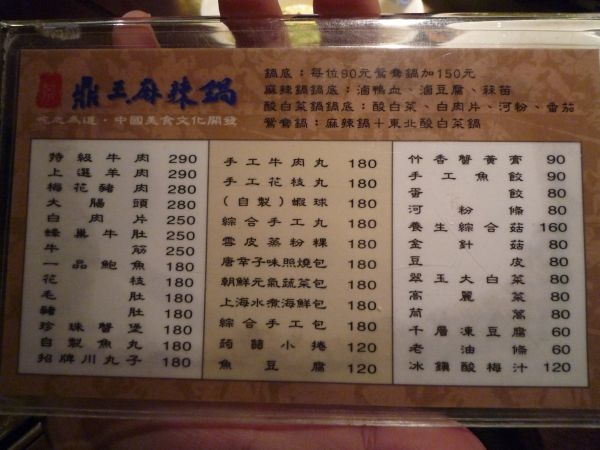 鼎王麻辣鍋
吃之為道·中國美食文化開發
鍋底：每位90元鴛鴦鍋加150元
麻辣鍋鍋底：滷鴨血、滷豆腐、蒜苗
酸白菜鍋鍋底：酸白菜、白肉片、河粉、番茄
鴛鴦鍋：麻辣鍋＋東北酸白菜鍋
特級牛肉 290
上選羊肉 290
梅花豬肉 280
大腸頭 280
白肉片 250
蜂巢牛肚 250
牛筋 250
一品鮑魚 180
花枝 180
毛肚 180
豬肚 180
珍珠蟹堡 180
自製魚丸 180
招牌川丸子 180
手工牛肉丸 180
手工花枝丸 180
(自製)蝦球 180
綜合手工丸 180
雪皮蒸粉粿 180
唐辛子味照燒包 180
朝鮮元氣蔬菜包 180
上海水煮海鮮包 180
綜合手工包 180
蒟蒻小捲 120
魚豆腐 120
竹香蟹黃膏 90
手工魚餃 90
蛋餃 80
河粉條 80
養生綜合菇 160
金針菇 80
豆皮 80
翠玉大白菜 80
高麗菜 80
茼蒿 80
千層凍豆腐 60
老油條 60
冰鎮酸梅汁 120